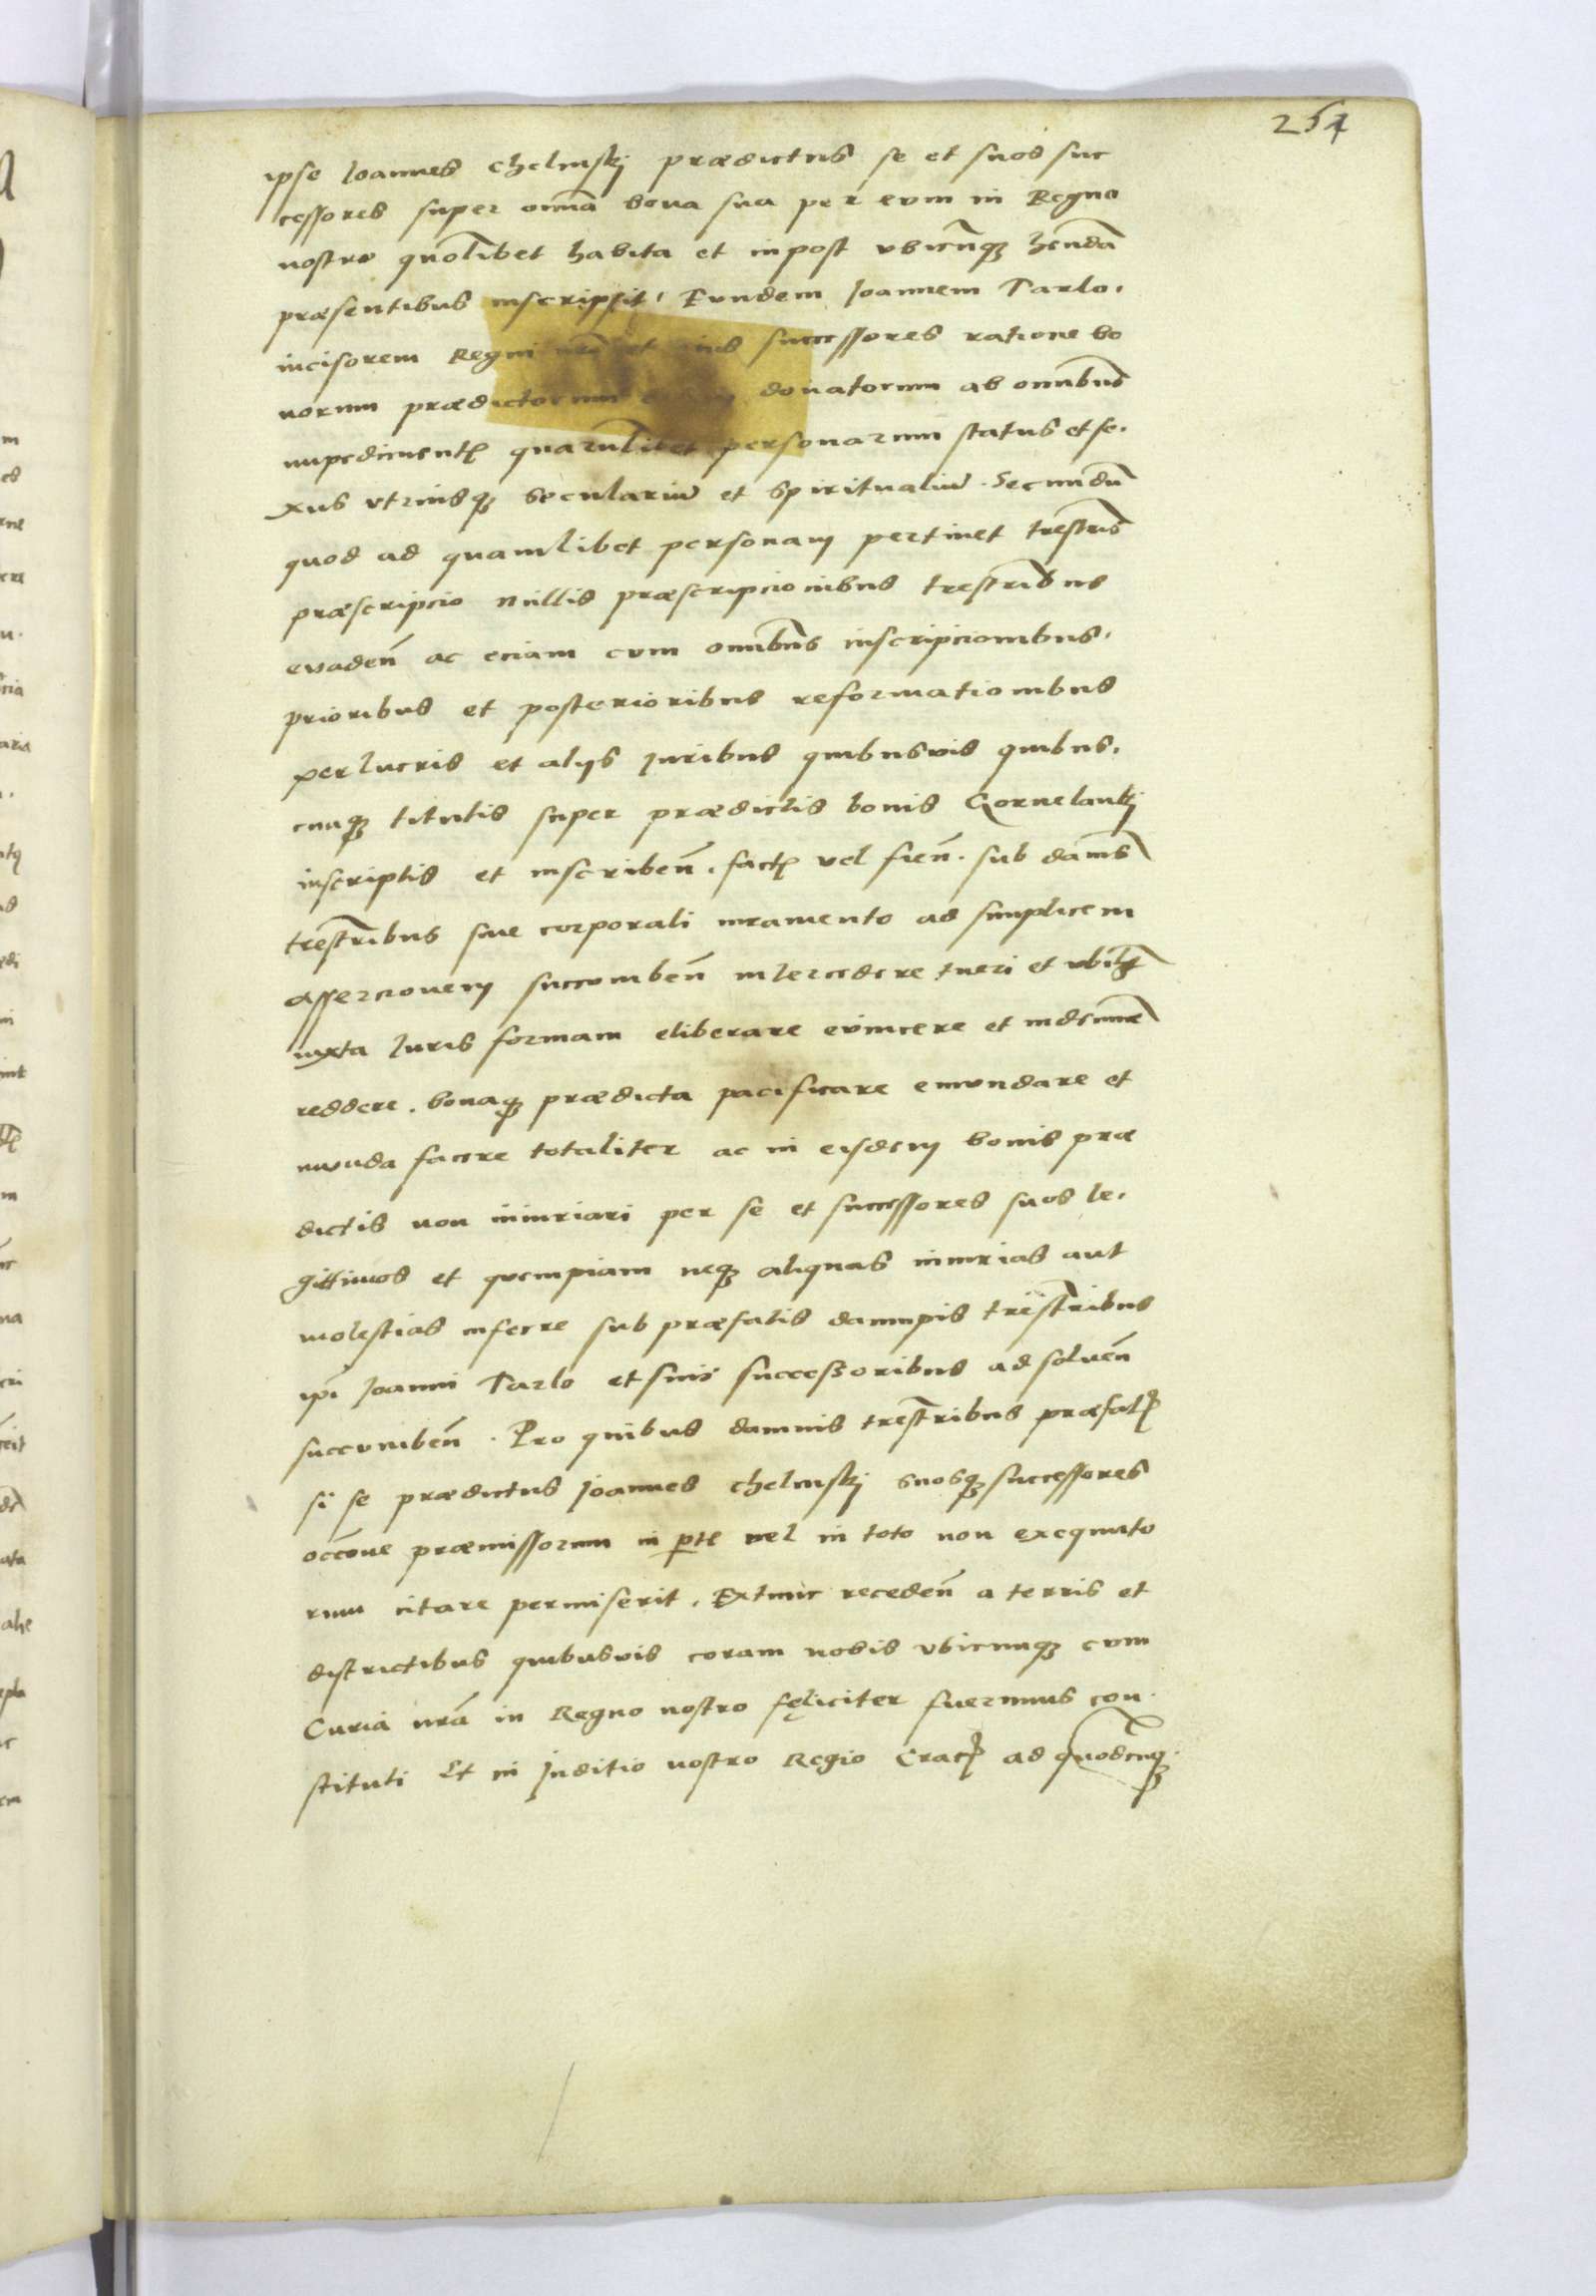 251
ipse Ioannes Chelmskj prædictus se et suos suc
cessores super om̄ia bona sua per eum in Regno
nostro quol̄ibet habita et inpost vbicūqȝ hēndā
præsentibus inscripsit, Eundem Ioannem Tarlo,
incisorem Regni nr̄i et eius successores ratione bo
norum prædictorum donatorum ab omībus
impedimentꝭ quarūlibet personarum status et se,
xus vtriusqȝ seculariū et spiritualiū. Secundū
quod ad quamlibet personam pertinet tr̄estris
præscripcio nullis præscripcionibus tr̄estribus
evadeñ ac eciam cum omībus inscripcionibus,
prioribus et posterioribus reformationibus
perlucris et alijs iuribus quibusuis quibus,
cunqȝ titulis super prædictis bonis Gornelautj
inscriptis et inscribeñ. factꝭ vel fieñ. sub damīs
tr̄estribus siue corporali iuramento ad simplicem
assercionem succumbeñ intercedere tueri et vbilꝫ
iuxta Iuris formam eliberare euincere et indemnē
reddere. bonaqȝ prædicta pacificare emundare et
munda facere totaliter ac in eisdem bonis præ
dictis non iniuriari per se et successores suos le,
gittimos et quempiam neqȝ aliquas iniurias aut
molestias inferre sub præfatis dampnis tr̄estribus
ip̄i Ioanni Tarlo et suis successoribus ad solueñ
succumbeñ. Pro quibus damnis tr̄estribus præfatꝭ
si se prædictus Ioannes Chelmskj suosqȝ successores
occ̄one præmissorum in p̄te vel in toto non exequuto
rum citare permiserit, Extunc recedeñ a terris et
districtibus quibusuis coram nobis vbicunqȝ cum
Curia nr̄a in Regno nostro fęliciter fuerimus con,
stituti Et in Juditio nostro Regio Cracꝭ ad quodcūqȝ.